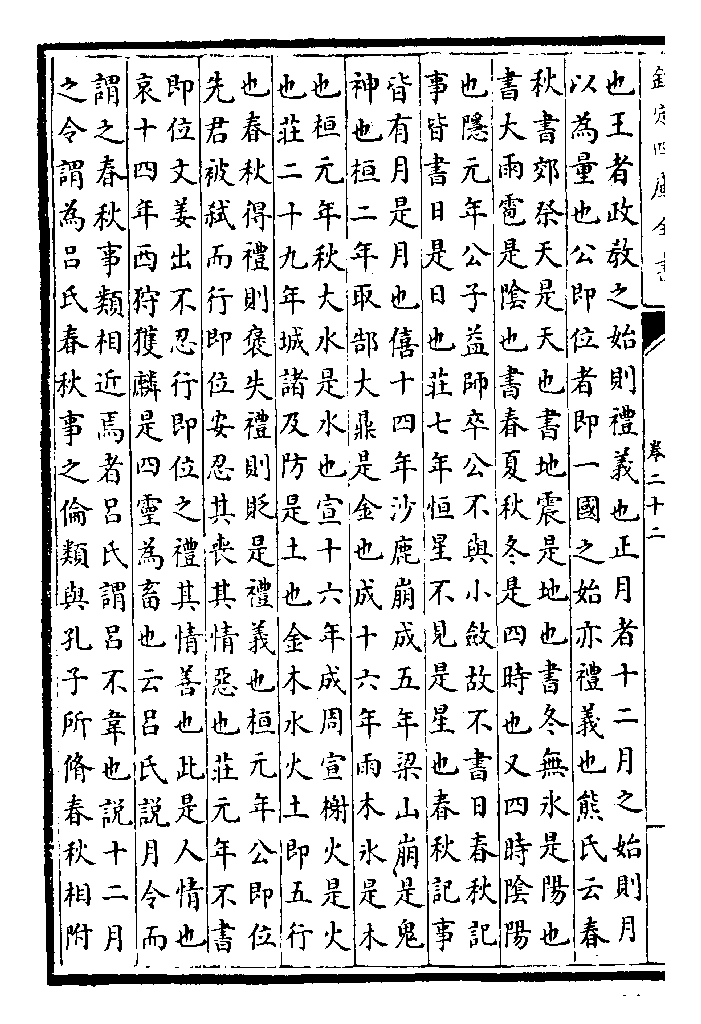 欽定四庫全書
卷二十二
也王者政教之始則禮義也正月者十二月之始則月
以為量也公即位者即一國之始亦禮義也熊氏云春
秋書郊祭天是天也書地震是地也書冬無冰是陽也
書大雨雹是陰也書春夏秋冬是四時也又四時陰陽
也隱元年公子益師卒公不與小斂故不書日春秋記
事皆書日是日也莊七年恒星不見是星也春秋記事
皆有月是月也僖十四年沙鹿崩成五年梁山崩是鬼
神也桓二年取郜大鼎是金也成十六年雨木氷是木
也桓元年秋大水是水也宣十六年成周宣榭火是火
也莊二十九年城諸及防是土也金木水火土即五行
也春秋得禮則褒失禮則貶是禮義也桓元年公即位
先君被弑而行即位安忍其喪其情惡也莊元年不書
即位文姜出不忍行即位之禮其情善也此是人情也
哀十四年西狩獲麟是四靈為畜也云吕氏説月令而
謂之春秋事類相近焉者吕氏謂吕不韋也説十二月
之令謂為吕氏春秋事之倫類與孔子所脩春秋相附